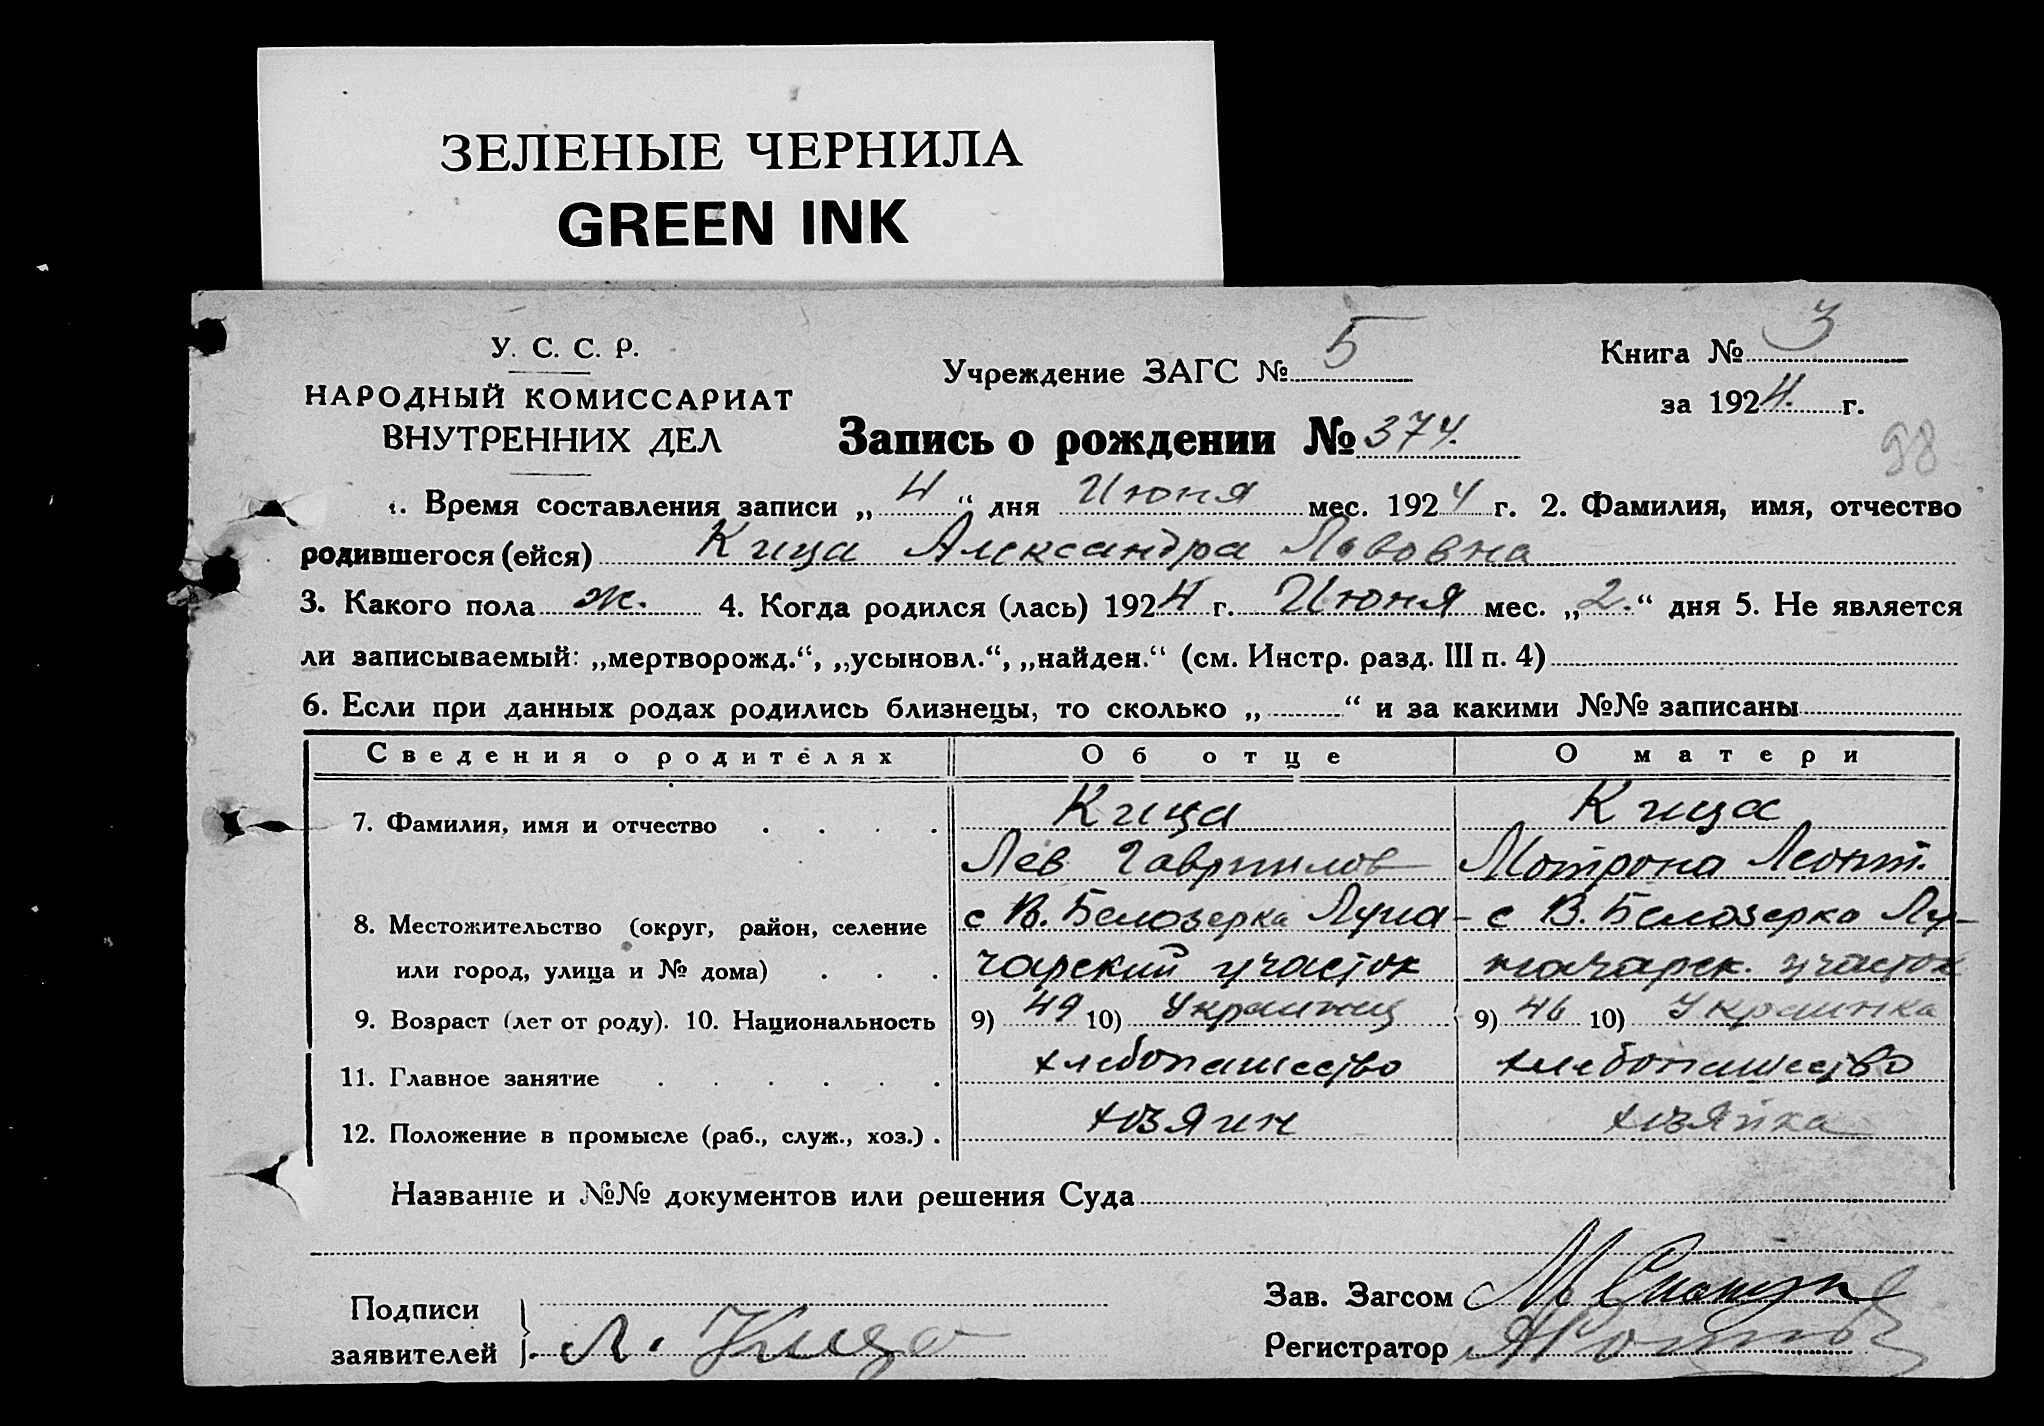 ЗЕЛЕНЫЕ ЧЕРНИЛА
GREEN INK
У. С. С. Р.
НАРОДНЫЙ КОМИССАРИАТ
ВНУТРЕННИХ ДЕЛ
Учреждение ЗАГС № 5
Книга № 3
за 1924. г.
Запись о рождении № 374.
98
1. Время составления записи „ 4 “ дня Июня мес. 1924 г. 2. Фамилия, имя, отчество
родившегося (ейся) Кица Александра Львовна
3. Какого пола ж. 4. Когда родился (лась) 1924 г. Июня мес. „ 2. “ дня 5. Не является
ли записываемый: „мертворожд.“, „усыновл.“, „найден.“ (см. Инстр. разд. III п. 4)
6. Если при данных родах родились близнецы, то сколько „ “ и за какими №№ записаны
Сведения о родителях Об отце О матери
7. Фамилия, имя и отчество . . . . Кица Кица
Лев Гаврилов Мотрона Леонт.
8. Местожительство (округ, район, селение с В. Белозерка Луна- с В. Белозерка Лу-
или город, улица и № дома) . . . чарский участок начарск. участок
9. Возраст (лет от роду). 10. Национальность 9) 49 10) Украинец 9) 46 10) Украинка
11. Главное занятие . . . . . . хлебопашество хлебопашество
12. Положение в промысле (раб., служ., хоз.) . хозяин хозяйка
Название и №№ документов или решения Суда
Зав. Загсом
Подписи
заявителей Л. Кица
Регистратор